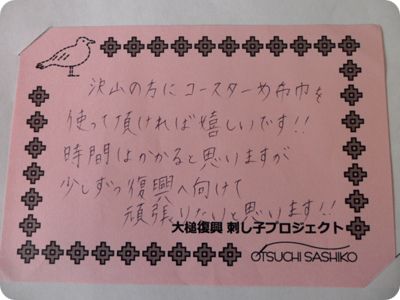 沢山の方にコースターや布巾を
使って頂ければ嬉しいです!!
時間はかかると思いますが
少しずつ復興へ向けて
頑張りたいと思います!!
大槌復興 刺し子プロジェクト
OTSUCHI SASHIKO